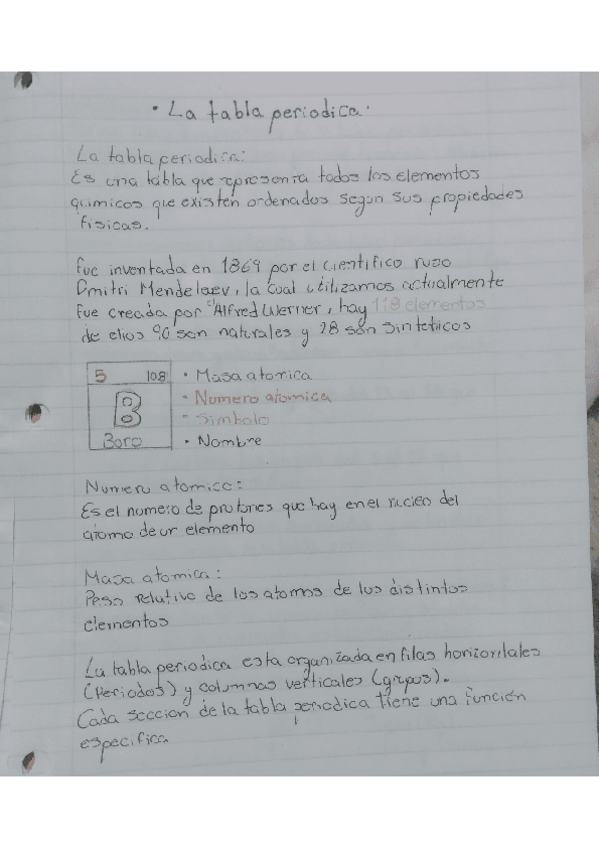 · La tabla periodica ·
La tabla periodica:
Es una tabla que representa todos los elementos
quimicos que existen ordenados segun sus propiedades
fisicas.
fue inventada en 1869 por el cientifico ruso
Dmitri Mendelaev, la cual utilizamos actualmente
fue creada por "Alfred Werner, hay 118 elementos
de ellos 90 son naturales y 28 son sinteticos
5 108 · Masa atomica
B · Numero atomica
- Simbolo
Boro · Nombre
Numero atomico:
Es el numero de protones que hay en el nucleo del
atomo de un elemento
Masa atomica:
Peso relativo de los atomos de los distintos
elementos
La tabla periodica esta organizada en filas horizontales
(Periodos) y columnas verticales (grupos).
Cada seccion de la tabla periodica tiene una función
especifica